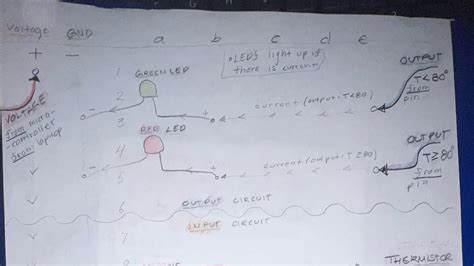 Voltage GND a b c d e
+ -
*LED's light up if
there is current
OUTPUT
T<80°
from
pin
1
GREEN LED
2
- + current (output: T<80°)
3
VOLTAGE
from micro-
-controller
from laptop
OUTPUT
T≥80°
from
pin
RED LED
4
- + current (output: T≥80)
5
6 OUTPUT CIRCUIT
INPUT CIRCUIT
7
THERMISTOR